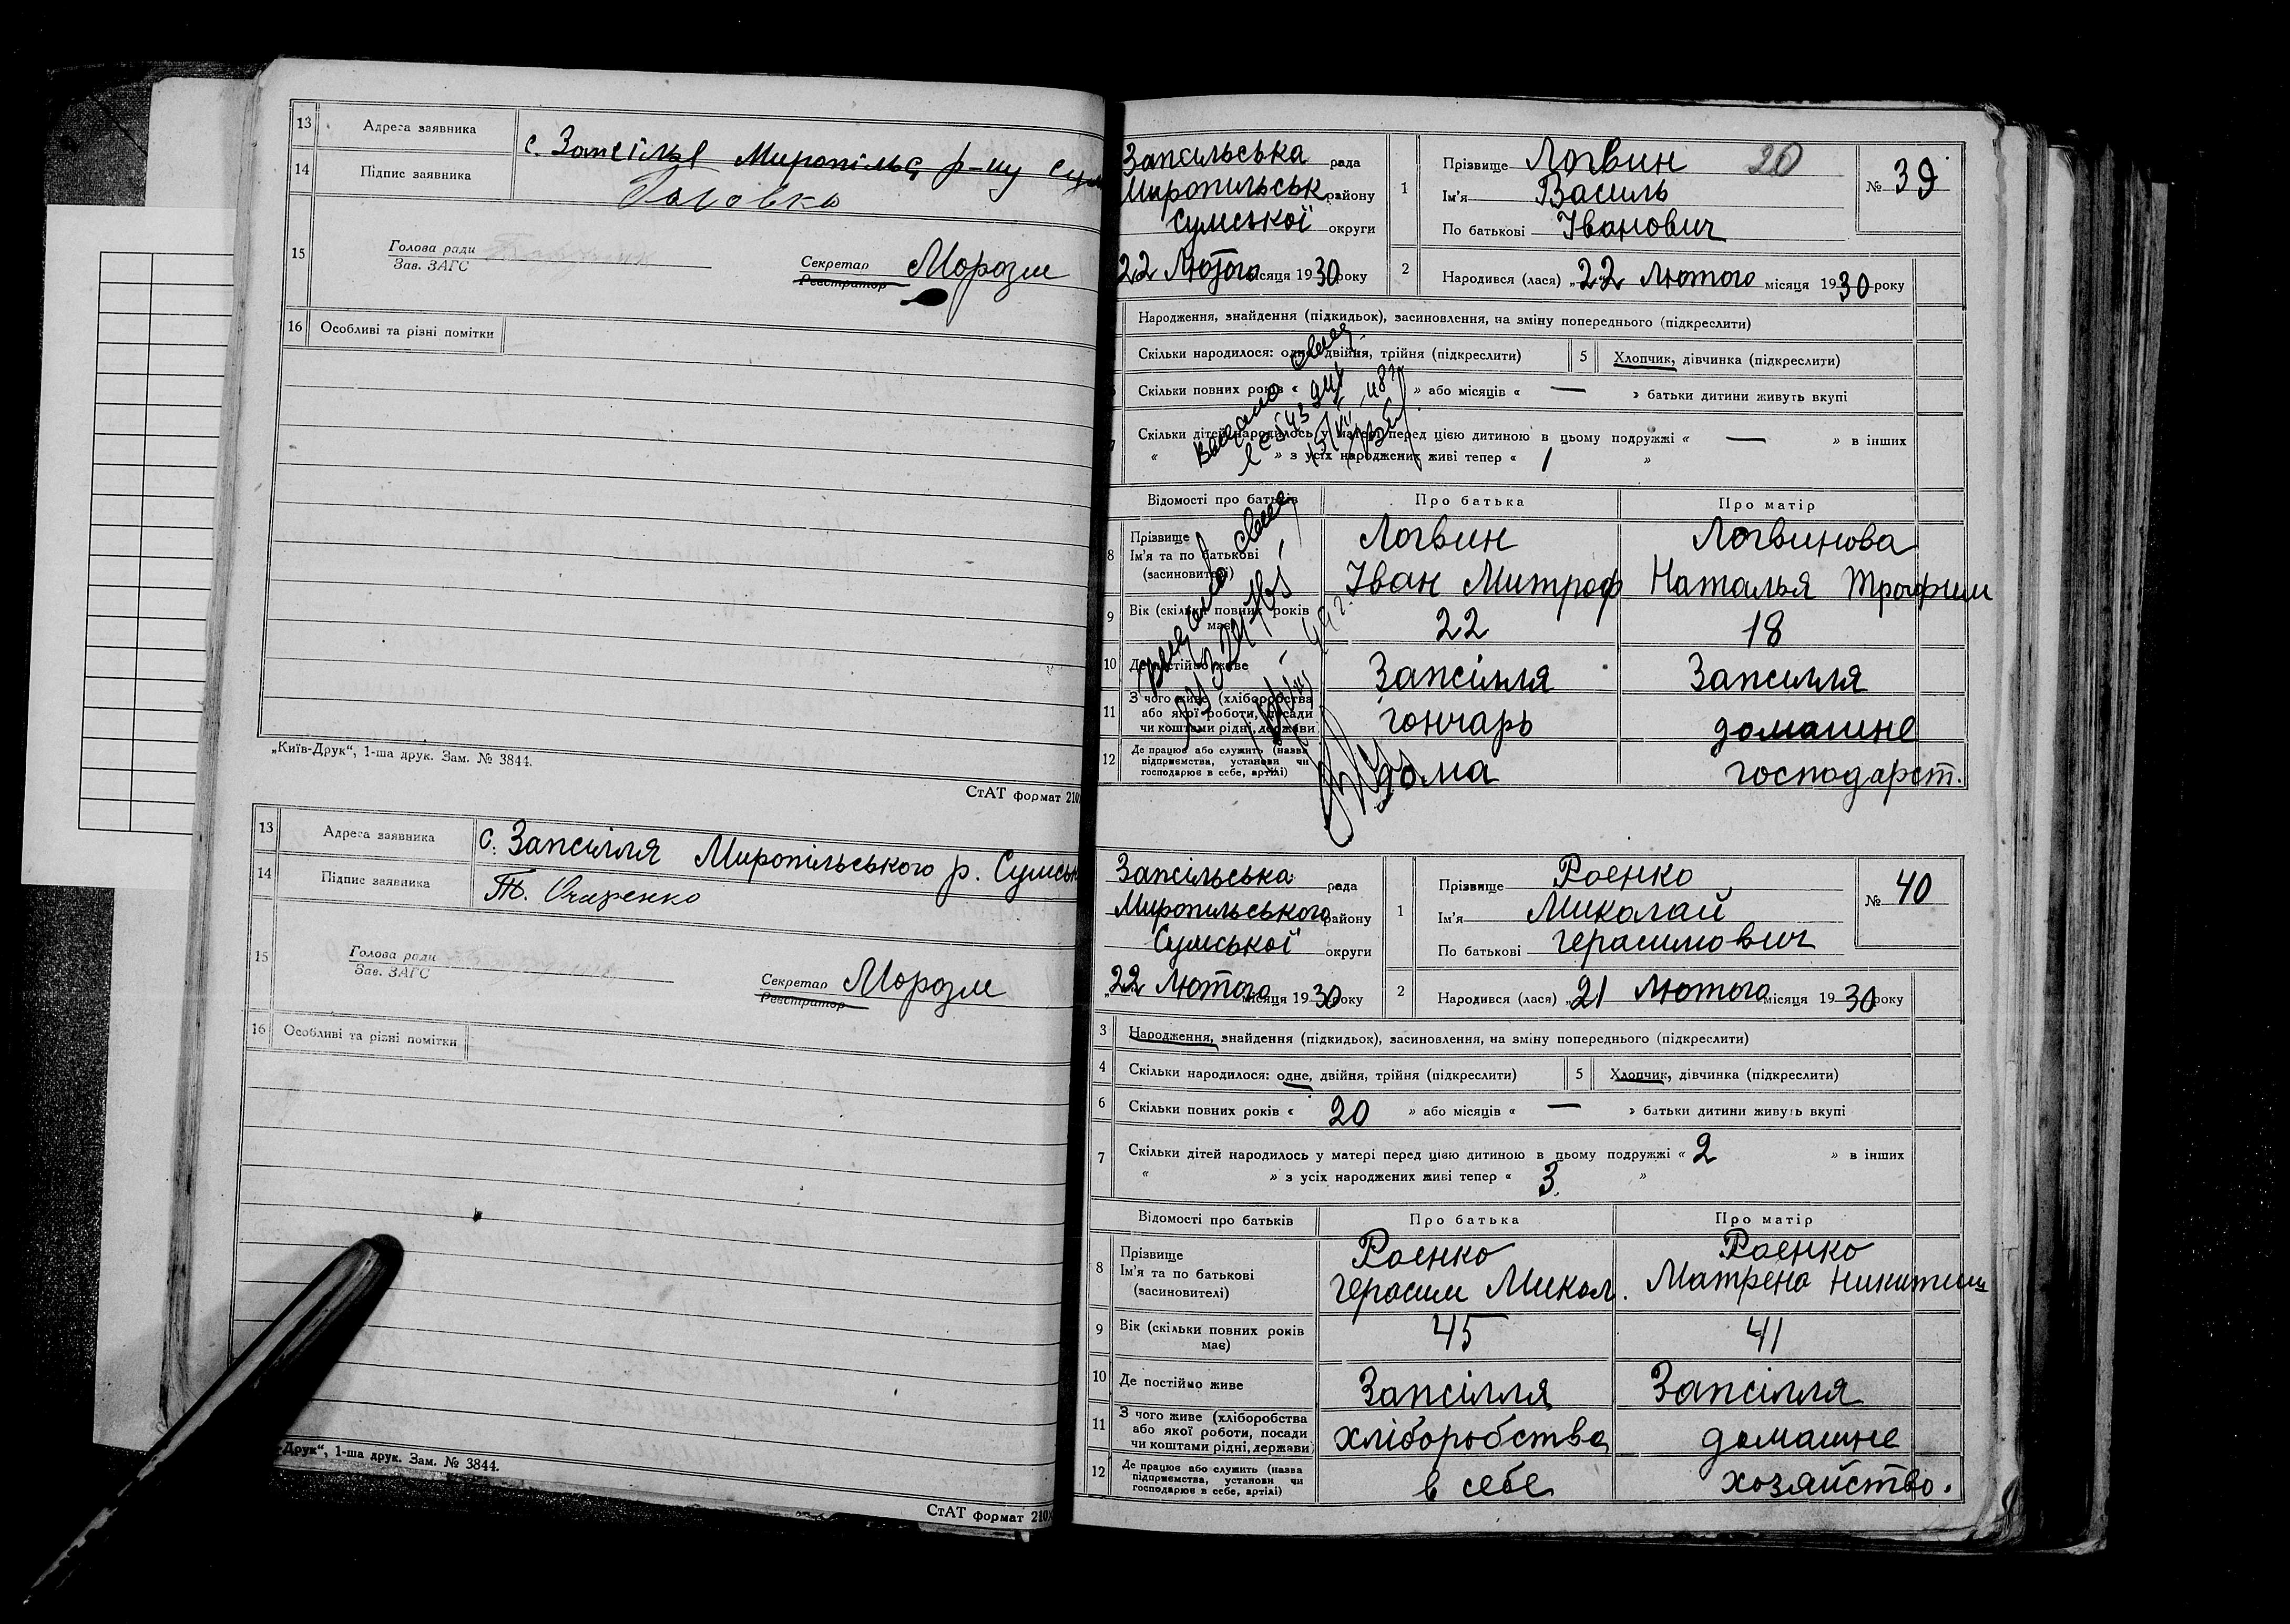 13 Адреса заявника с. Запсілля Миропільс р-ну Сум
14 Підпис заявника Головко
15 Голова ради
Зав. ЗАГС
Секретар Морозм
Реєстратор
16 Особливі та різні помітки
„Київ-Друк“, 1-ша друк. Зам. № 3844.
СтАТ формат 210
13 Адреса заявника с. Запсілля Миропільського р. Сумськ
14 Підпис заявника
15 Голова ради
Зав. ЗАГС
Секретар Морозм
Реєстратор
16 Особливі та різні помітки
-Друк“, 1-ша друк. Зам. № 3844.
СтАТ формат 210
Запсильська рада
Миропильськ району
Сумської округи
22 Лютого місяця 1930 року
1 Прізвище Логвин 20
Ім'я Василь
По батькові Іванович
№ 39
2 Народився (лася) „22 Лютого місяця 1930 року
Народження, знайдення (підкидьок), засиновлення, на зміну попереднього (підкреслити)
Скільки народилося: одне, двійня, трійня (підкреслити) 5 Хлопчик, дівчинка (підкреслити)
Скільки повних років « » або місяців « — » батьки дитини живуть вкупі
Скільки дітей народилось у матері перед цією дитиною в цьому подружжі « — » в інших
« » з усіх народжених живі тепер « 1 »
Відомості про батьків Про батька Про матір
8 Прізвище Логвин Логвинова
Ім'я та по батькові Іван Митроф Наталья Трофим
(засиновителі)
9 Вік (скільки повних років має) 22 18
10 Де постійно живе Запсілля Запсилля
11 З чого живе (хліборобства
або якої роботи, посади
чи коштами рідні, держави) гончарь домашне
12 Де працює або служить (назва
підприємства, установи чи
господарює в себе, артілі) дома господарст.
Запсільська рада
Миропильського району
Сумської округи
„22 Лютого місяця 1930 року
1 Прізвище Роенко
Ім'я Миколай
По батькові Герасимович
№ 40
2 Народився (лася) „21 Лютого місяця 1930 року
3 Народження, знайдення (підкидьок), засиновлення, на зміну попереднього (підкреслити)
4 Скільки народилося: одне, двійня, трійня (підкреслити) 5 Хлопчик, дівчинка (підкреслити)
6 Скільки повних років « 20 » або місяців « — » батьки дитини живуть вкупі
7 Скільки дітей народилось у матері перед цією дитиною в цьому подружжі « 2 » в інших
« » з усіх народжених живі тепер « 3 »
Відомості про батьків Про батька Про матір
8 Прізвище Роенко Роенко
Ім'я та по батькові Герасим Микол. Матрена Никитиш
(засиновителі)
9 Вік (скільки повних років має) 45 41
10 Де постійно живе Запсілля Запсілля
11 З чого живе (хліборобства
або якої роботи, посади
чи коштами рідні, держави) хліборобства домашне
12 Де працює або служить (назва
підприємства, установи чи
господарює в себе, артілі) в себе хозяйство.